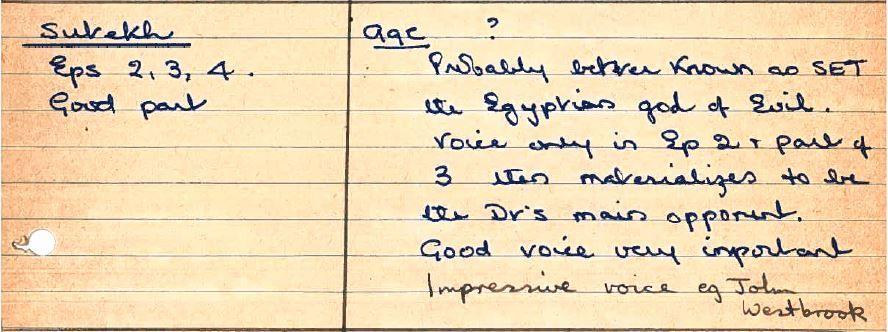 Sutekh
Eps 2, 3, 4.
Good part
Age ?
Probably better known as SET
the Egyptian god of Evil.
Voice only in Ep 2 + part of
3 then materializes to be
the Dr's main opponent.
Good voice very important
Impressive voice eg John
Westbrook